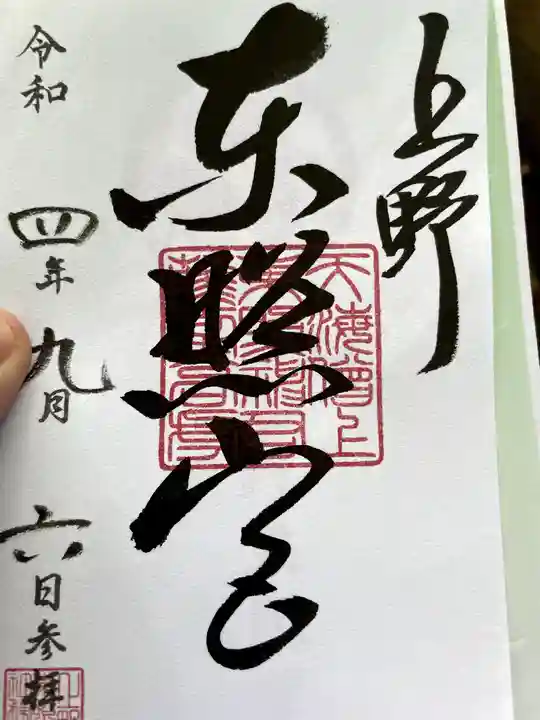 上野
東照宮
令和四年九月六日参拝